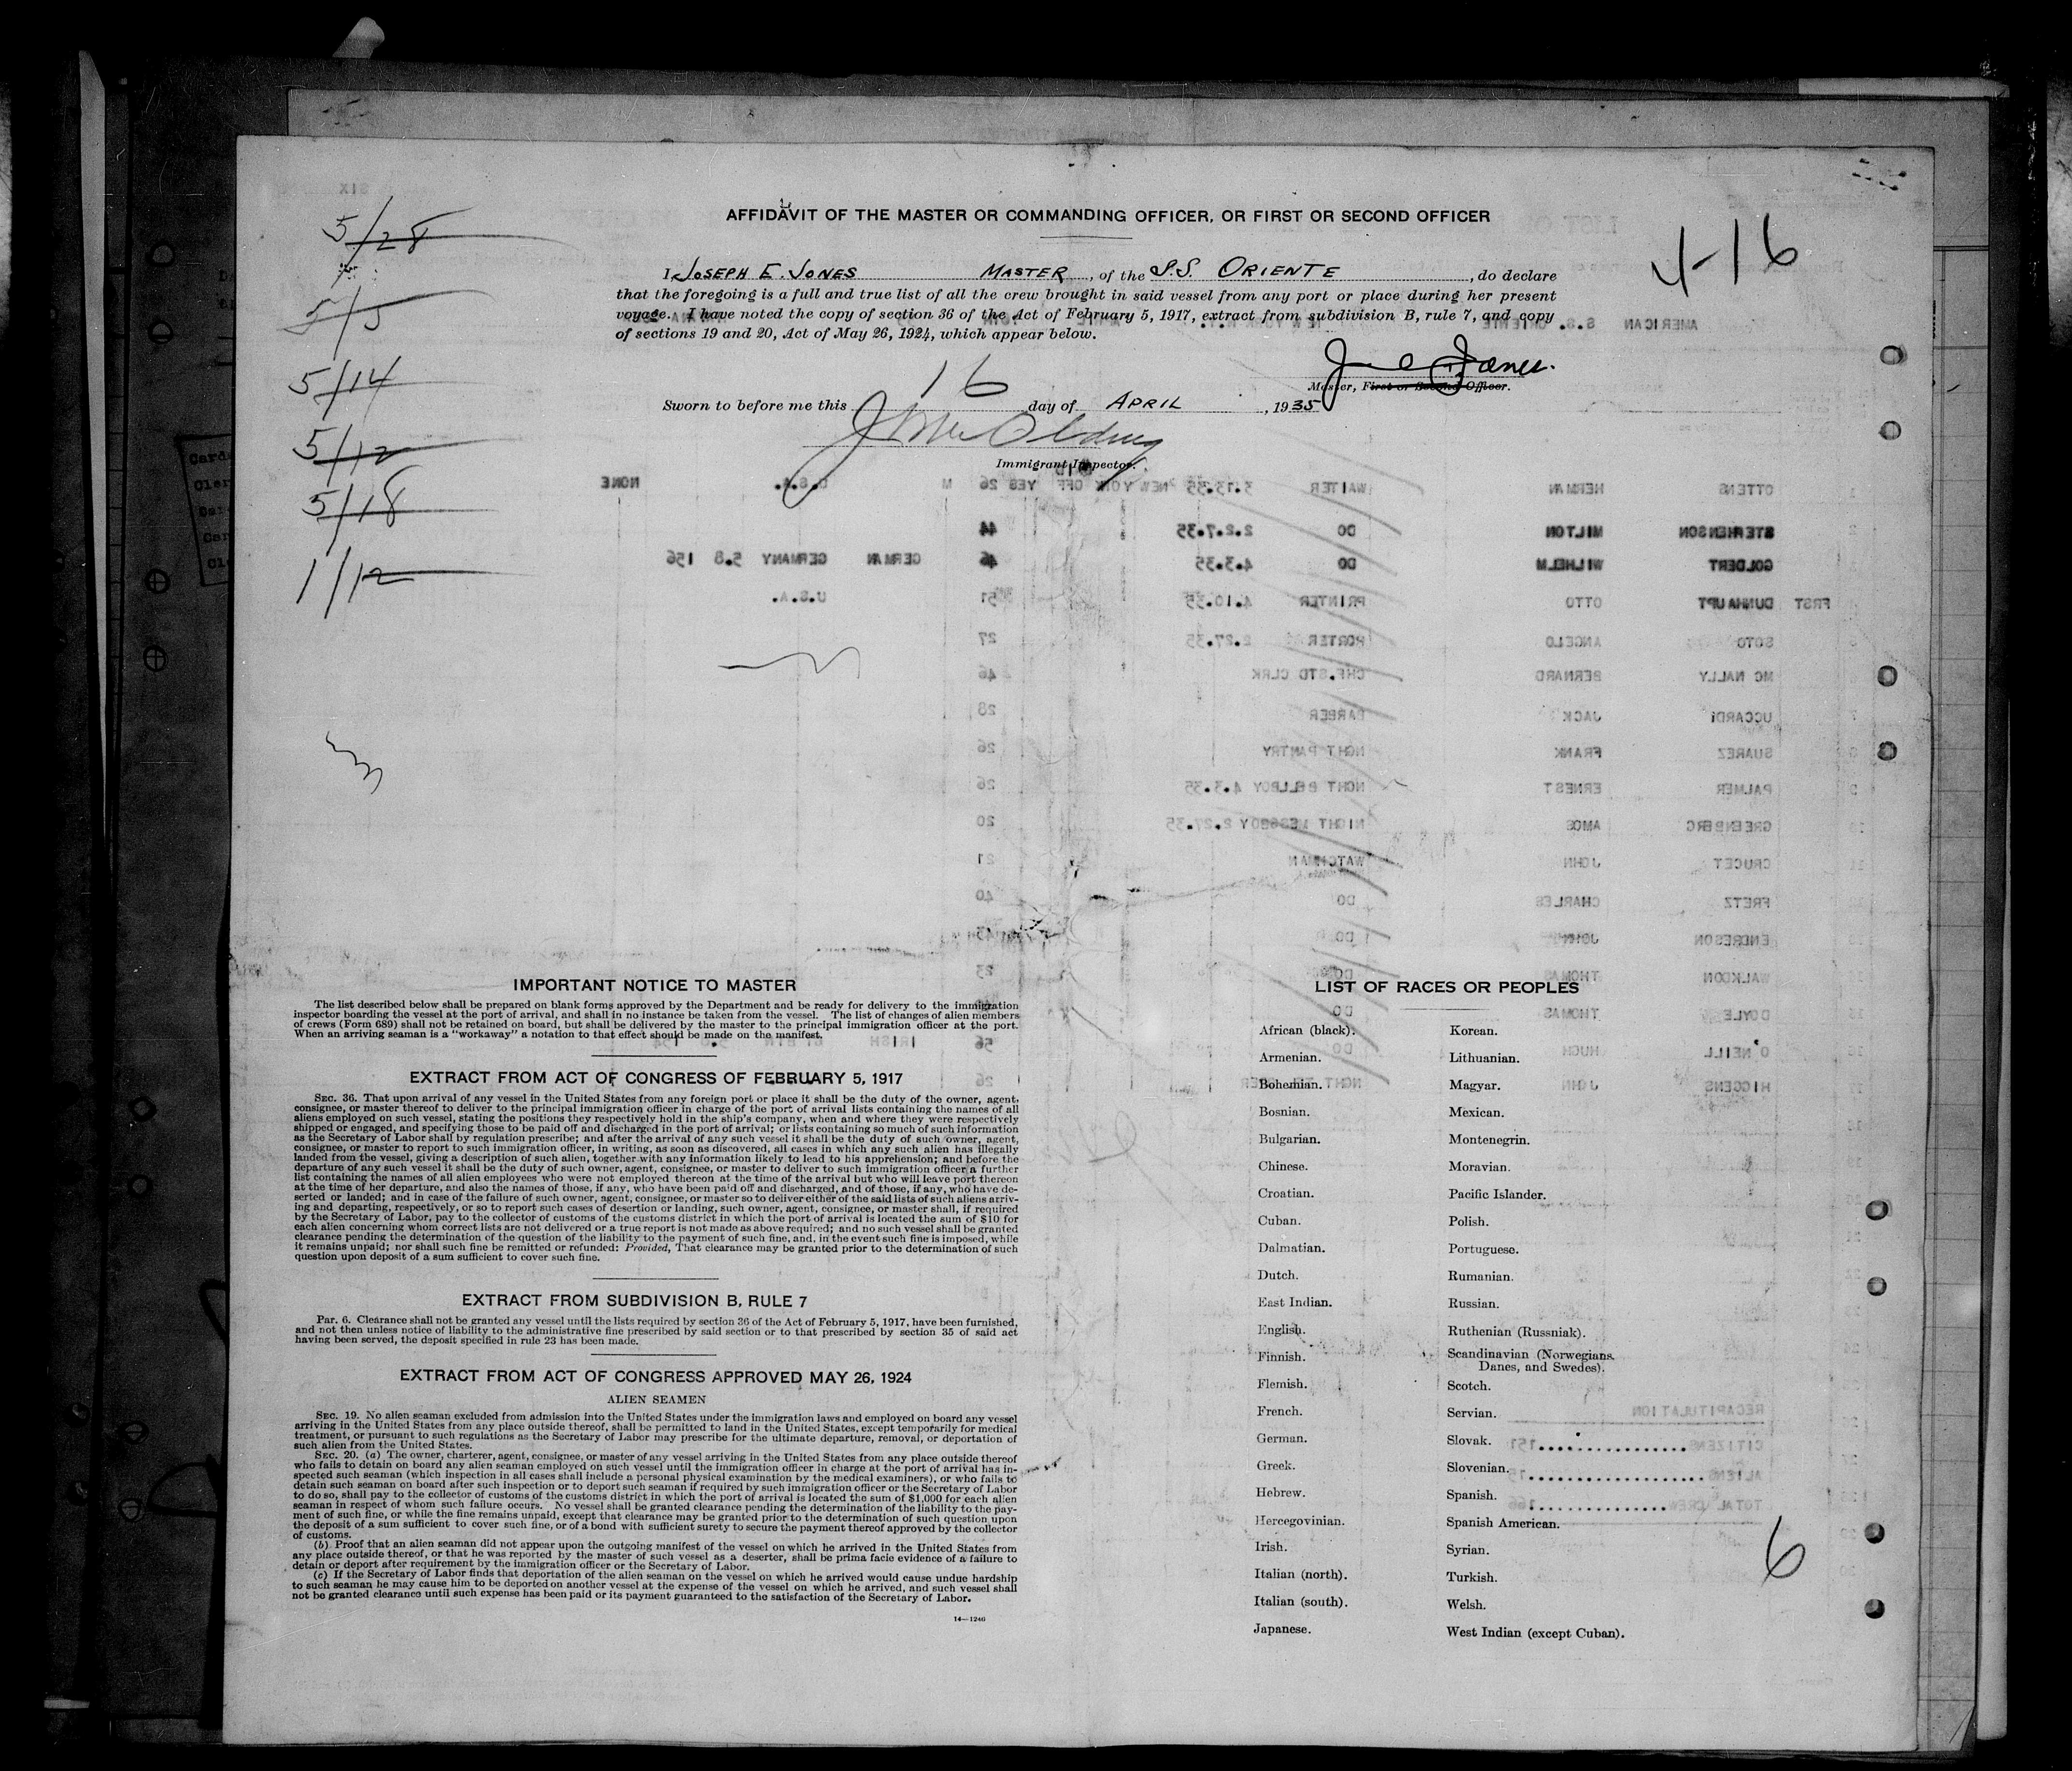 AFFIDAVIT OF THE MASTER OR COMMANDING OFFICER, OR FIRST OR SECOND OFFICER
5/28
4-16
I, JOSEPH E. JONES MASTER, of the S.S. ORIENTE, do declare
that the foregoing is a full and true list of all the crew brought in said vessel from any port or place during her present
voyage. I have noted the copy of section 36 of the Act of February 5, 1917, extract from subdivision B, rule 7, and copy
of sections 19 and 20, Act of May 26, 1924, which appear below.
5/5
5/14
Master, First or Second Officer.
Sworn to before me this 16 day of APRIL, 1935
5/12
Immigrant Inspector.
5/18
1/12
OTTENS HERMAN WAITER 3.13.35 NEW YORK OFF YES 26 M U.S.A. NONE
STEPHENSON MILTON DO 2.27.35 44
GOLDERT WILHELM DO 4.3.35 46 GERMAN GERMANY 5.8 156
FRST DUNHAUPT OTTO PRINTER 4.10.35 51 U.S.A.
SOTO ANGELO PORTER 2.27.35 27
MC NALLY BERNARD CHF.STD CLRK 46
UCCARDI JACK BARBER 28
SUAREZ FRANK NGHT PANTRY 26
PALMER ERNEST NGHT BELLBOY 4.3.35 26
GREENBERG AMOS NIGHT MESSBOY 2.27.35 20
CRUCET JOHN WATCHMAN 21
FRETZ CHARLES DO 40
ENERESON JOHN DO
WALKDON THOMAS DO 23
DOYLE THOMAS DO
O'NEILL HUGH DO 56 IRISH
HIGGENS JOHN NGHT 26
IMPORTANT NOTICE TO MASTER
The list described below shall be prepared on blank forms approved by the Department and be ready for delivery to the immigration
inspector boarding the vessel at the port of arrival, and shall in no instance be taken from the vessel. The list of changes of alien members
of crews (Form 689) shall not be retained on board, but shall be delivered by the master to the principal immigration officer at the port.
When an arriving seaman is a "workaway" a notation to that effect should be made on the manifest.
EXTRACT FROM ACT OF CONGRESS OF FEBRUARY 5, 1917
SEC. 36. That upon arrival of any vessel in the United States from any foreign port or place it shall be the duty of the owner, agent,
consignee, or master thereof to deliver to the principal immigration officer in charge of the port of arrival lists containing the names of all
aliens employed on such vessel, stating the positions they respectively hold in the ship's company, when and where they were respectively
shipped or engaged, and specifying those to be paid off and discharged in the port of arrival; or lists containing so much of such information
as the Secretary of Labor shall by regulation prescribe; and after the arrival of any such vessel it shall be the duty of such owner, agent,
consignee, or master to report to such immigration officer, in writing, as soon as discovered, all cases in which any such alien has illegally
landed from the vessel, giving a description of such alien, together with any information likely to lead to his apprehension; and before the
departure of any such vessel it shall be the duty of such owner, agent, consignee, or master to deliver to such immigration officer a further
list containing the names of all alien employees who were not employed thereon at the time of the arrival but who will leave port thereon
at the time of her departure, and also the names of those, if any, who have been paid off and discharged, and of those, if any, who have de-
serted or landed; and in case of the failure of such owner, agent, consignee, or master so to deliver either of the said lists of such aliens arriv-
ing and departing, respectively, or so to report such cases of desertion or landing, such owner, agent, consignee, or master shall, if required
by the Secretary of Labor, pay to the collector of customs of the customs district in which the port of arrival is located the sum of $10 for
each alien concerning whom correct lists are not delivered or a true report is not made as above required; and no such vessel shall be granted
clearance pending the determination of the question of the liability to the payment of such fine, and, in the event such fine is imposed, while
it remains unpaid; nor shall such fine be remitted or refunded: Provided, That clearance may be granted prior to the determination of such
question upon deposit of a sum sufficient to cover such fine.
EXTRACT FROM SUBDIVISION B, RULE 7
Par. 6. Clearance shall not be granted any vessel until the lists required by section 36 of the Act of February 5, 1917, have been furnished,
and not then unless notice of liability to the administrative fine prescribed by said section or to that prescribed by section 35 of said act
having been served, the deposit specified in rule 23 has been made.
EXTRACT FROM ACT OF CONGRESS APPROVED MAY 26, 1924
ALIEN SEAMEN
SEC. 19. No alien seaman excluded from admission into the United States under the immigration laws and employed on board any vessel
arriving in the United States from any place outside thereof, shall be permitted to land in the United States, except temporarily for medical
treatment, or pursuant to such regulations as the Secretary of Labor may prescribe for the ultimate departure, removal, or deportation of
such alien from the United States.
SEC. 20. (a) The owner, charterer, agent, consignee, or master of any vessel arriving in the United States from any place outside thereof
who fails to detain on board any alien seaman employed on such vessel until the immigration officer in charge at the port of arrival has in-
spected such seaman (which inspection in all cases shall include a personal physical examination by the medical examiners), or who fails to
detain such seaman on board after such inspection or to deport such seaman if required by such immigration officer or the Secretary of Labor
to do so, shall pay to the collector of customs of the customs district in which the port of arrival is located the sum of $1,000 for each alien
seaman in respect of whom such failure occurs. No vessel shall be granted clearance pending the determination of the liability to the pay-
ment of such fine, or while the fine remains unpaid, except that clearance may be granted prior to the determination of such question upon
the deposit of a sum sufficient to cover such fine, or of a bond with sufficient surety to secure the payment thereof approved by the collector
of customs.
(b) Proof that an alien seaman did not appear upon the outgoing manifest of the vessel on which he arrived in the United States from
any place outside thereof, or that he was reported by the master of such vessel as a deserter, shall be prima facie evidence of a failure to
detain or deport after requirement by the immigration officer or the Secretary of Labor.
(c) If the Secretary of Labor finds that deportation of the alien seaman on the vessel on which he arrived would cause undue hardship
to such seaman he may cause him to be deported on another vessel at the expense of the vessel on which he arrived, and such vessel shall
not be granted clearance until such expense has been paid or its payment guaranteed to the satisfaction of the Secretary of Labor.
14—1246
LIST OF RACES OR PEOPLES
African (black).
Armenian.
Bohemian.
Bosnian.
Bulgarian.
Chinese.
Croatian.
Cuban.
Dalmatian.
Dutch.
East Indian.
English.
Finnish.
Flemish.
French.
German.
Greek.
Hebrew.
Hercegovinian.
Irish.
Italian (north).
Italian (south).
Japanese.
Korean.
Lithuanian.
Magyar.
Mexican.
Montenegrin.
Moravian.
Pacific Islander.
Polish.
Portuguese.
Rumanian.
Russian.
Ruthenian (Russniak).
Scandinavian (Norwegians,
Danes, and Swedes).
Scotch.
Servian.
Slovak.
Slovenian.
Spanish.
Spanish American.
Syrian.
Turkish.
Welsh.
West Indian (except Cuban).
RECAPITULATION
CITIZENS 151
ALIENS 15
TOTAL CREW 166
6